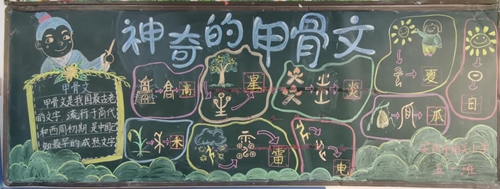 神奇的甲骨文
甲骨文
甲骨文是我国最古老
的文字,流行于商代
和西周初期,是中国已
知最早的成熟文字
高
星
炎
夏
日
木
雷
电
瓜